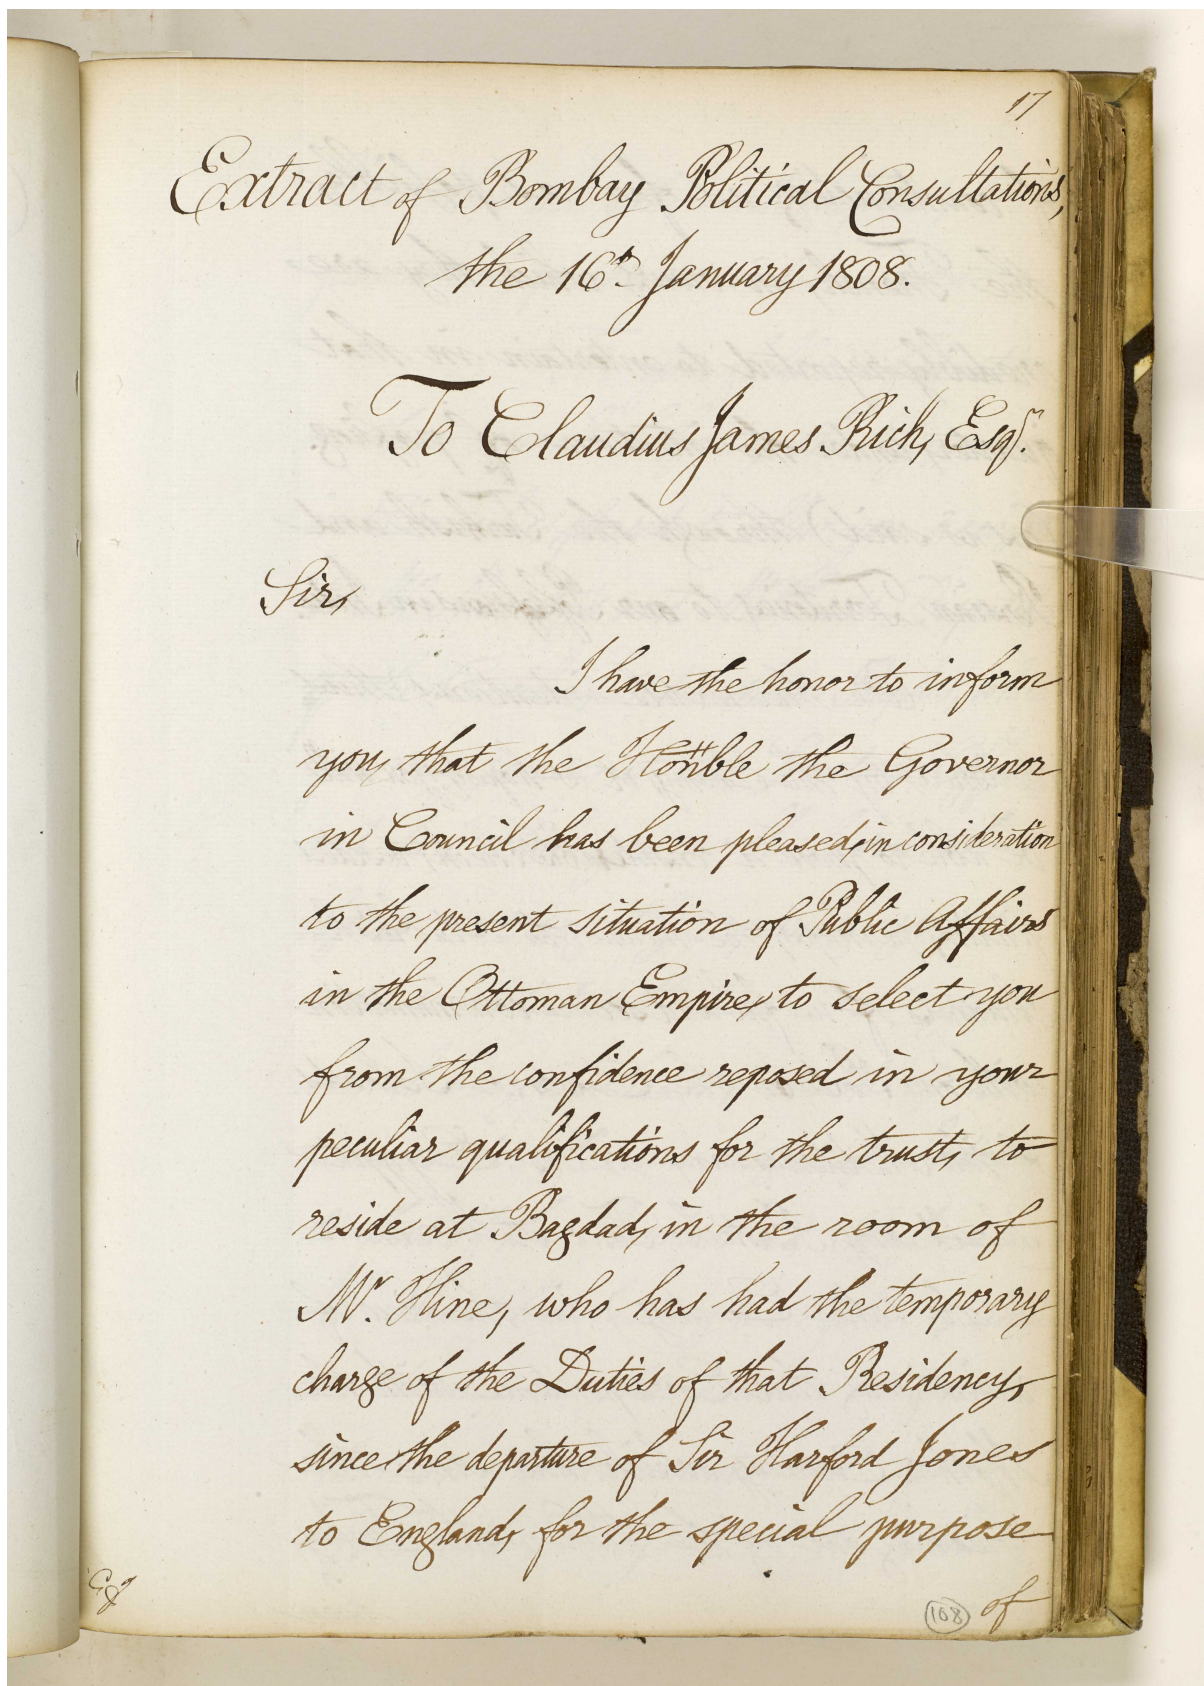 17
Extract of Bombay Political Consultations,
the 16th. January 1808.
To Claudius James Rich, Esqr.
Sir,
I have the honor to inform
you, that the Honble the Governor
in Council has been pleased, in consideration
to the present situation of Public Affairs
in the Ottoman Empire, to select you
from the confidence reposed in your
peculiar qualifications for the trust, to
reside at Bagdad, in the room of
Mr. Hine, who has had the temporary
charge of the Duties of that Residency,
since the departure of Sir Harford Jones
to England, for the special purpose
of
108